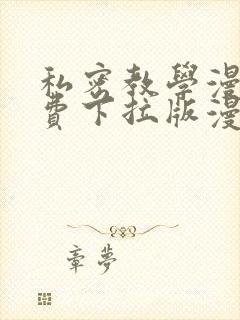 私密教學漫
費下拉版漫
章夢